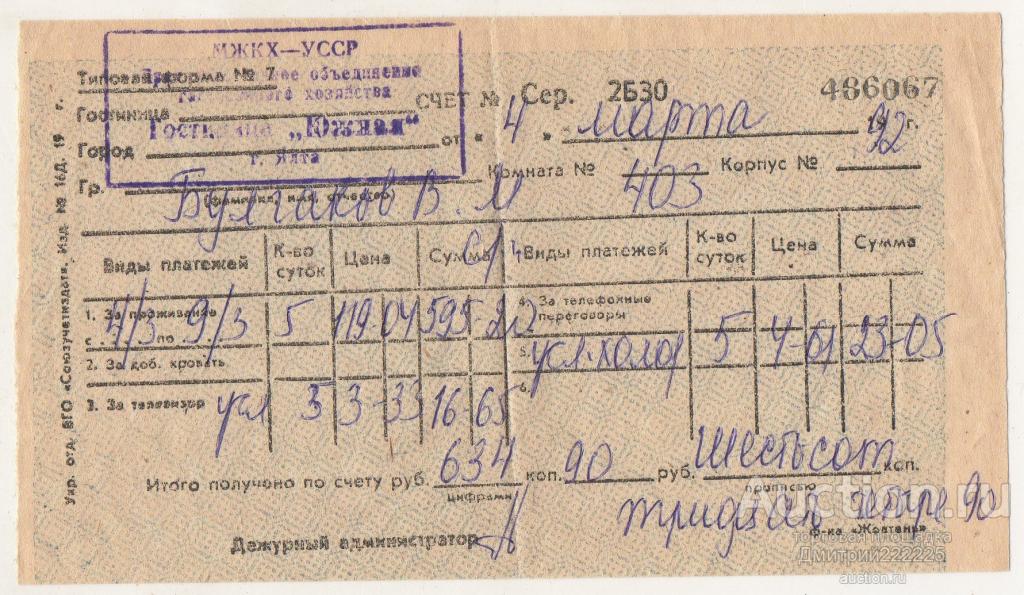 МЖКХ—УССР
объединение
хозяйства
Гостиница „Южная"
г. Ялта
Типовая форма № 7
Гостиница
СЧЕТ № Сер. 2БЗ0 486067
Город от „ 4 " марта 1992 г.
Гр. Булгаков В. М Комната № 403 Корпус №
(фамилия, имя, отчество)
Виды платежей К-во суток Цена Сумма Виды платежей К-во суток Цена Сумма
1. За проживание 4. За телефонные переговоры
с 4/3 по 9/3 5 119-04 595-20
5. усл. холод 5 4-61 23-05
2. За доб. кровать 6.
3. За телевизор усл 5 3-33 16-65
Итого получено по счету руб. 634 коп. 90 руб. Шестьсот коп.
цифрами прописью
тридцать четыре 90
Дежурный администратор
ф-ка «Жовтень»
Укр. отд. ВГО «Союзучетиздат». Изд. № 16Д. 19 г.
Auction.ru
торговая площадка
Дмитрий222225
auction.ru